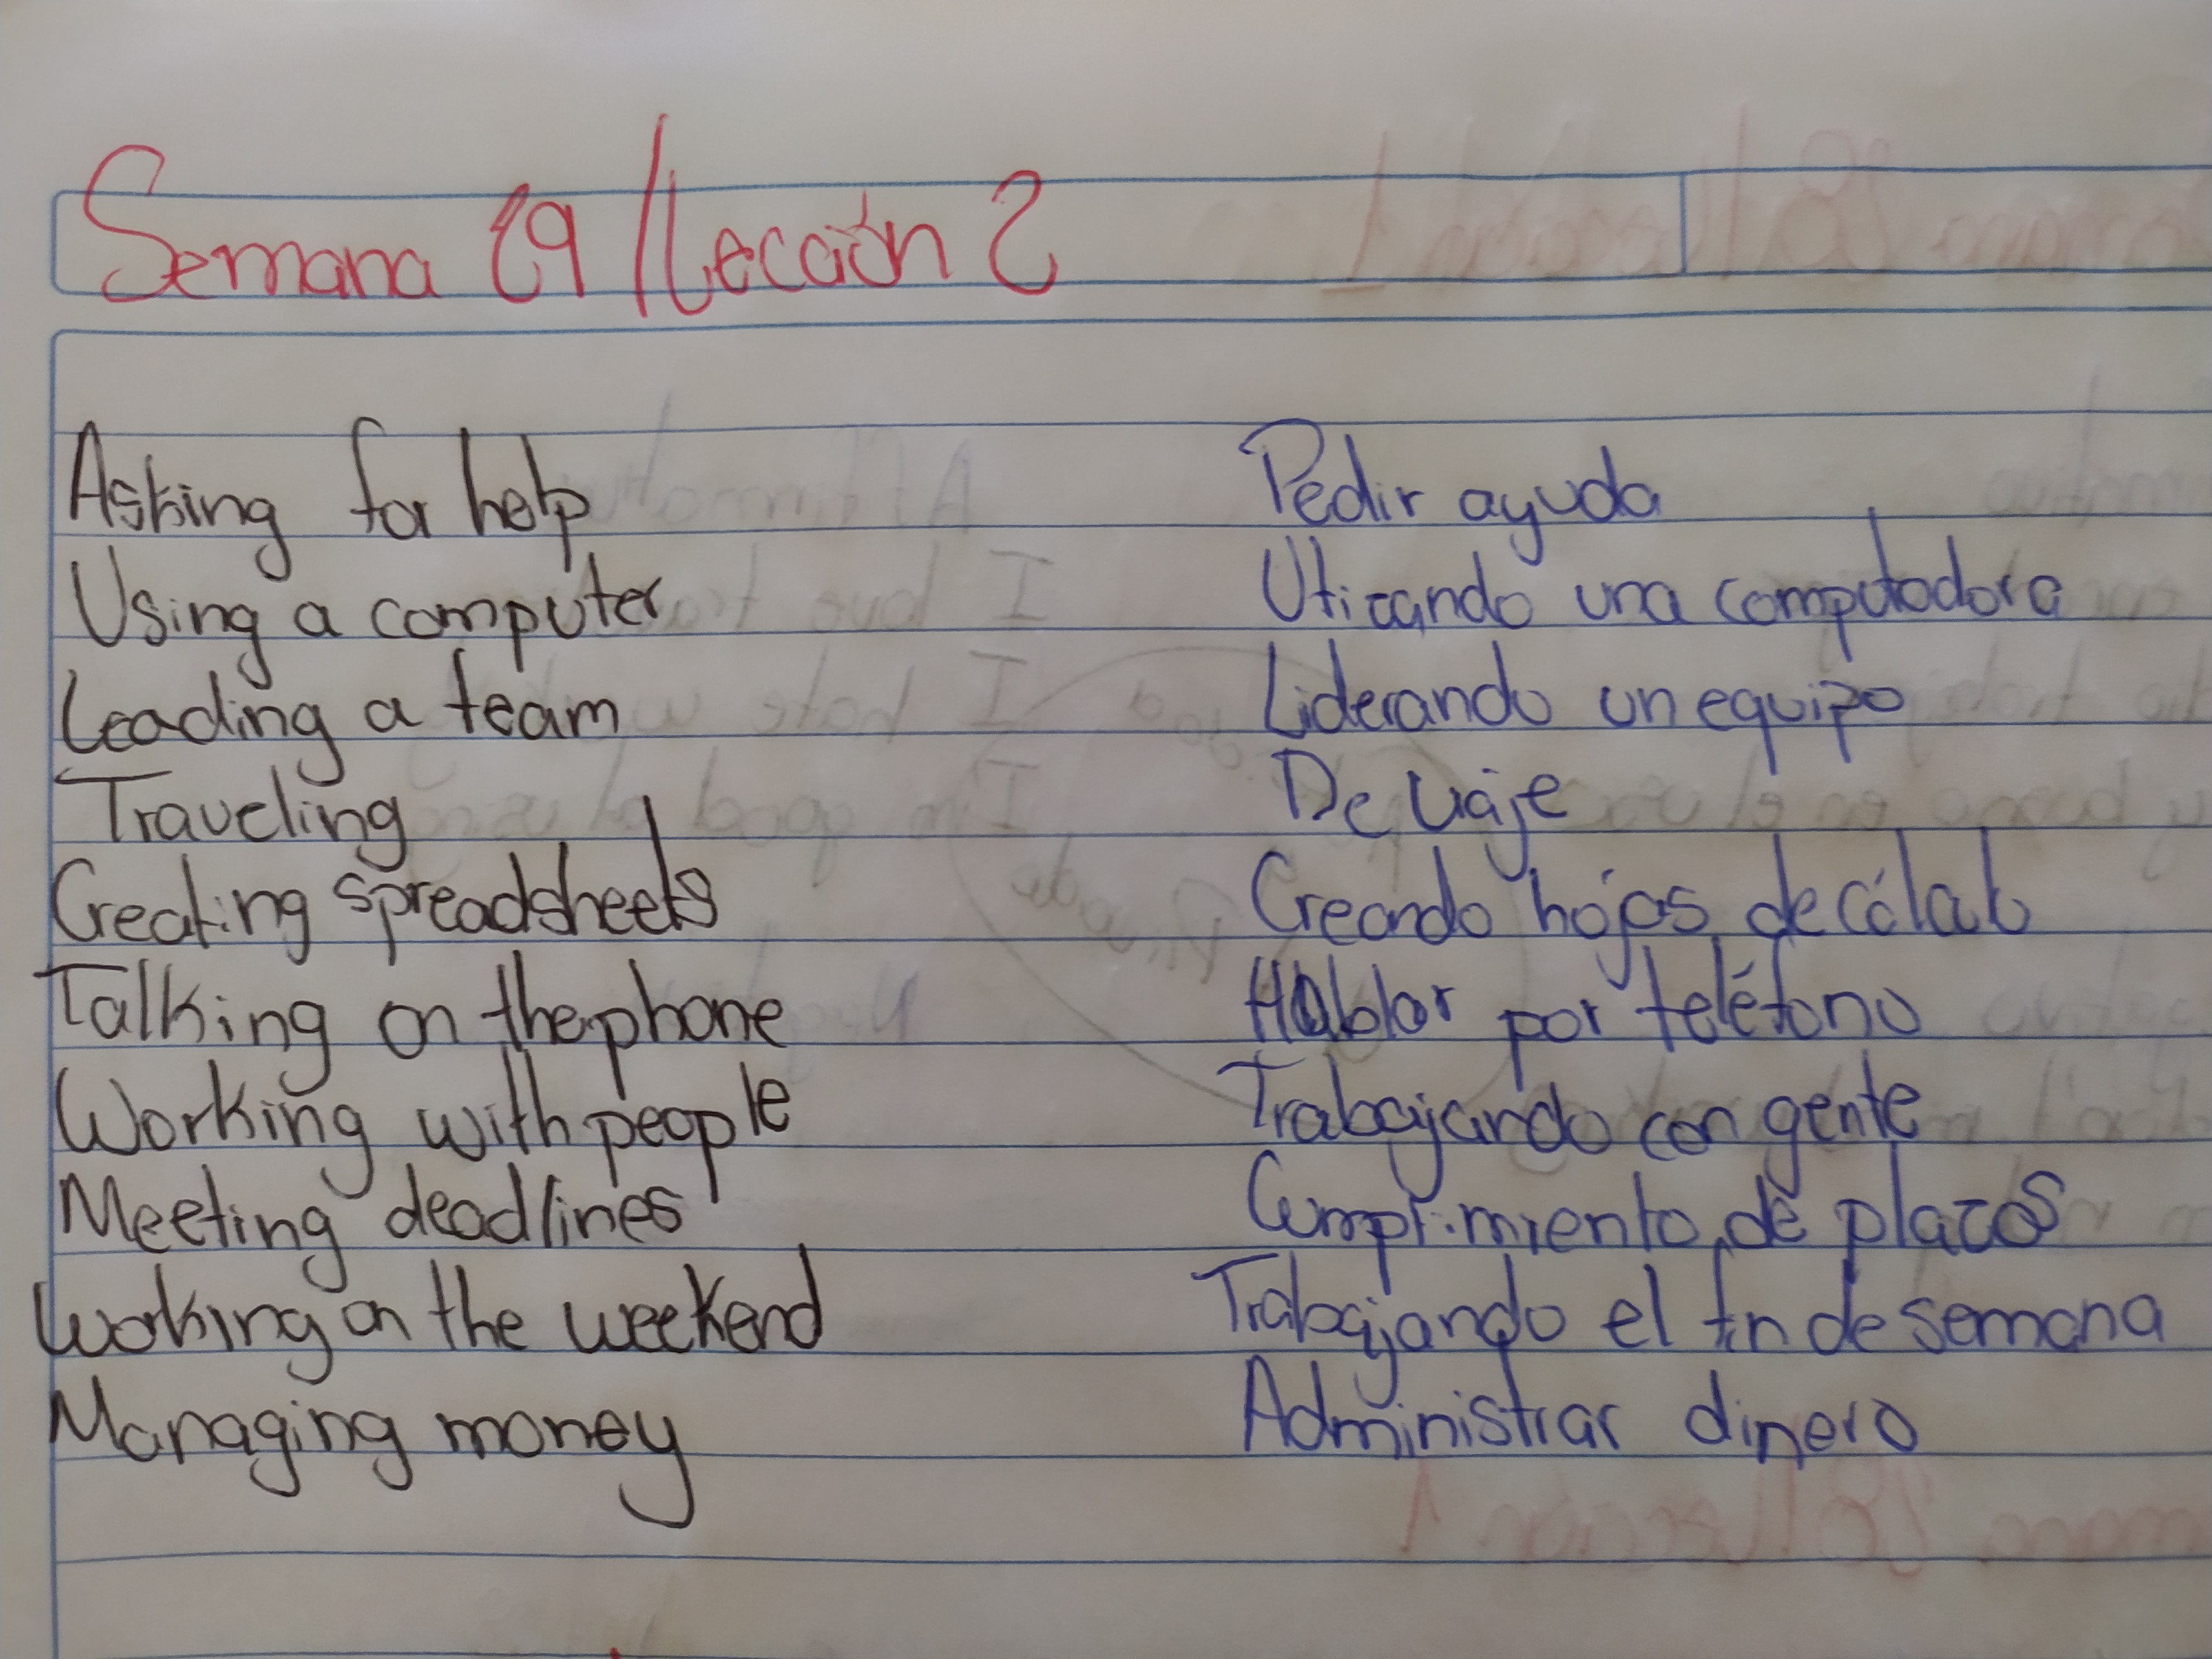 Semana 29 / Lección 2
Asking for help Pedir ayuda
Using a computer Uticando una computadora
Leading a team Liderando un equipo
Traveling De viaje
Creating spreadsheets Creando hojas de cálculo
Talking on the phone Hablar por teléfono
Working with people Trabajando con gente
Meeting deadlines Cumplimiento de plazos
Working on the weekend Trabajando el fin de semana
Managing money Administrar dinero